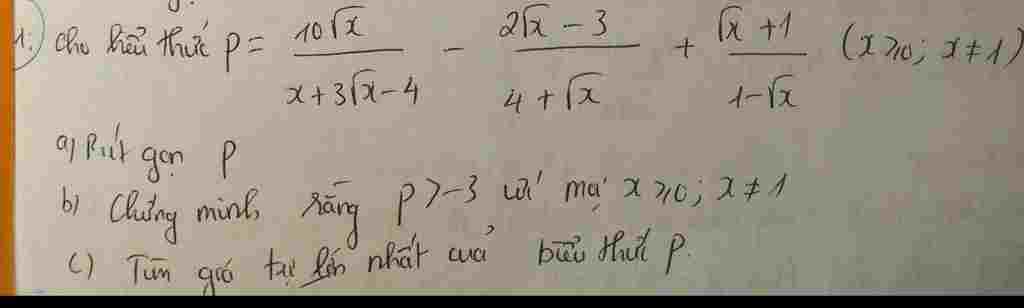 1. Cho biểu thức P = 10√x / (x + 3√x - 4) - (2√x - 3) / (4 + √x) + (√x + 1) / (1 - √x) (x ⩾ 0; x ≠ 1)
a) Rút gọn P
b) Chứng minh rằng P > -3 với mọi x ⩾ 0; x ≠ 1
c) Tìm giá trị lớn nhất của biểu thức P.